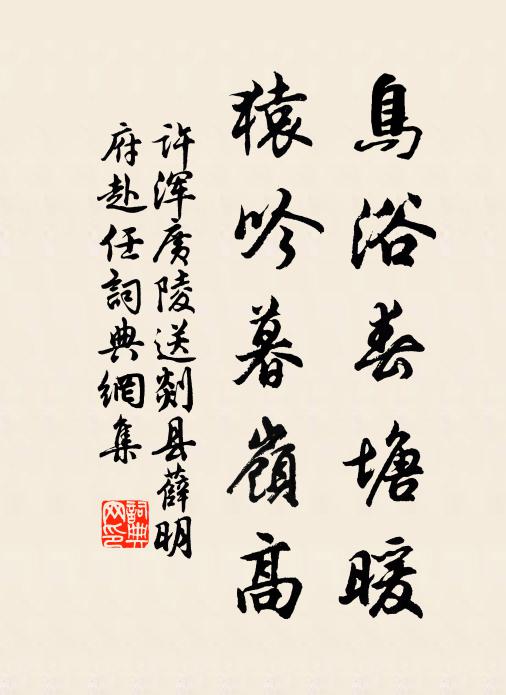 鳥浴春塘暖
猿吟暮嶺高
许浑廣陵送剡县薛明
府赴任詞典網集
詞典
网印